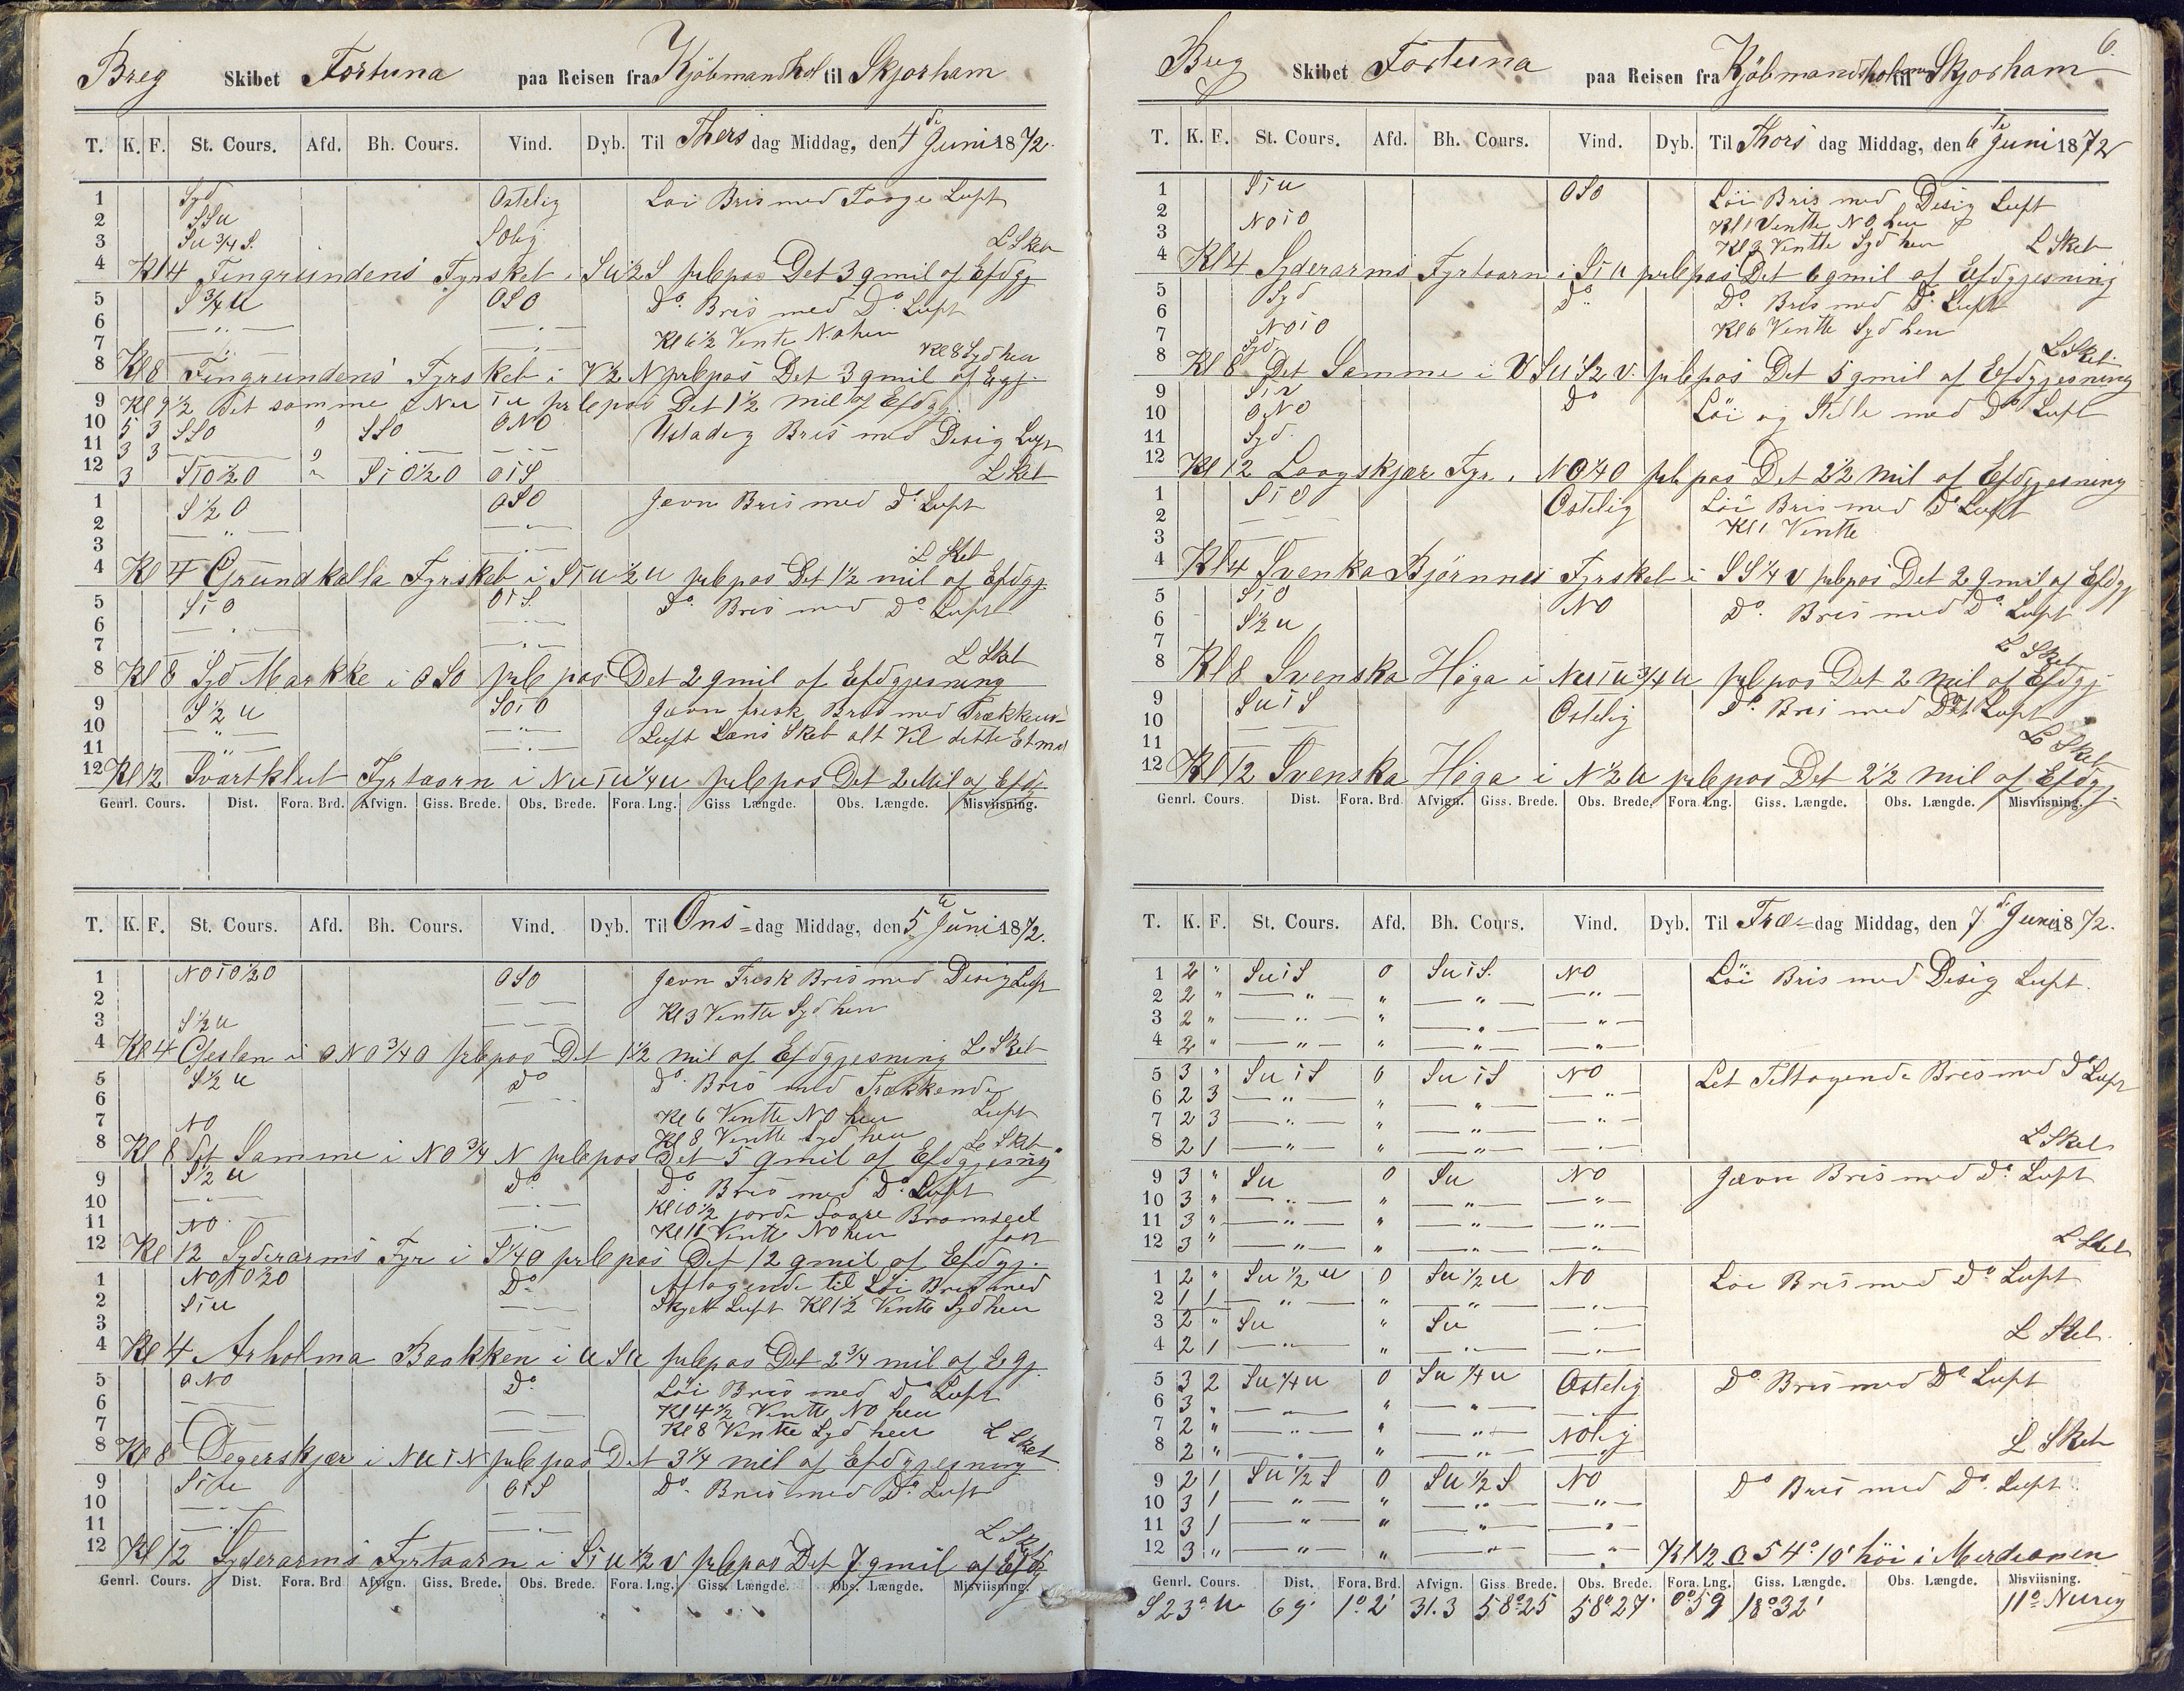 Breg Skibet Fortuna paa Reisen fra Kjöbmandhol til Skjorham
T. K. F. St. Cours. Afd. Bh. Cours. Vind. Dyb. Til Thers dag Middag, den 4de Juni 1872.
1 Syd Ostelig Loi Bris med Taage Luft
2 SSu
3 Su 3/4 S. SOlig L Sket
4 Kl 4 Fingrundens Fyrskeb i Su½S prlepas Det 3 qmil af Efdgj
5 S ¾ u OSO Do. Bris med Do. Luft
6 — " — — " —
7 — " — — " — Kl 6½ Vente No hen
8 Kl 8 Fingrundens Fyrskeb i V½N prlepas Det 3 qmil af Egj. Kl 8 Syd hen
9 Kl 9½ Det samme i Nu i u prlepas Det 1½ mil af Efdgj.
10 5 3 SSO 0 SSO ONO Ustadig Bris med Disig Luft
11 3 3 — " — — " —
12 3 SiO½O " SiO½O OiS L Sket
1 S ½ O OSO Jevn Bris med Do Luft
2 — " — — " —
3
4 Kl 4 Grundkalla Fyrskeb i Siu½u prlepas Det 1½ mil af Efdgj. L Sket
5 SiO OiS. Do. Bris med Do. Luft
6 — " — — " —
7 — " — — " — L Sket
8 Kl 8 Syd Markke i OSO prlepas Det 2 qmil af Efdgjesning
9 S ½ u SOiO Jævn frisk Bris med Trækkens
10 — " — — " — Luft Læns Skeb alt Vel dette Etmal
11 — " — — " —
12 Kl 12 Svartklub Fyrtaarn i Nu i u ¼ u prlepas Det 2 Mil af Efdg
Genrl. Cours. Dist. Fora. Brd. Afvign. Giss. Brede. Obs. Brede. Fora. Lng. Giss Længde. Obs. Længde. Misviisning.
T. K. F. St. Cours. Afd. Bh. Cours. Vind. Dyb. Til Ons-dag Middag, den 5te Juni 1872.
1 NOiO½O OSO Jevn Frisk Bris med Disig Luft
2 — " —
3 S ½ u — " — Kl 3 Ventte Syd hen
4 Kl 4 Gieslan i ONO ¾ O prlepas Det 1½ mil af Efdgjesning L Sket
5 S ½ u Do Do. Bris med Trækkende
6 — " — Kl 6 Ventte NO hen Luft
7 NO Kl 8 Ventte Syd hen L Sket
8 Kl 8 Det Samme i NO ¾ N prlepas Det 5 qmil af Efdgjesning
9 S ½ u Do Do. Bris med Do. Luft
10 — " — — " — Kl 10½ jorde Faare Bramseel
11 NO — " — Kl 11 Ventte NO hen fast
12 Kl 12 Syderarms Fyr i S ¼ O prlepas Det 12 qmil af Efdgj.
1 NOiO½O Do Aftagende til Löi Bris med
2 Siu — " — Skyet Luft Kl 1½ Ventte Syd hen
3
4 Kl 4 Arholma Baakken i u Su prlepas Det 2¾ mil af Egj.
5 ONO Do. Löi Bris med Do Luft
6 — " — Kl 4½ Ventte NO hen
7 — " — Kl 8 Ventte Syd hen L Sket
8 Kl 8 Degerskjær i Nu i N prlepas Det 3¼ mil af Efdgjesning
9 Siu OiS Do. Bris med Do. Luft
10 — " — — " —
11 — " — — " — L Sket
12 Kl 12 Syderarms Fyrtaarn i Siu½v prlepas Det 7 qmil af Efdg
Genrl. Cours. Dist. Fora. Brd Afvign. Giss. Brede. Obs. Brede. Fora. Lng. Giss. Længde. Obs. Længde. Misviisning.
6.
Breg Skibet Fortuna paa Reisen fra Kjöbmandholmen til Skjorham
T. K. F. St. Cours. Afd. Bh. Cours. Vind. Dyb. Til Thors dag Middag, den 6te Juni 1872
1 Siu OSO Löi Bris med Disig Luft
2 NOiO Kl 1 Ventte NO hen
3 Kl 2 Ventte Syd hen L Sket
4 Kl 4 Syderarms Fyrtaarn i Siu prlepas Det 6 qmil af Efdgjesning
5 Syd Do Do. Bris med Do. Luft
6 NOiO Kl 6 Ventte Syd hen
7 Syd. L Sket
8 Kl 8 Det Samme i VSu½v. prlepas Det 5 qmil af Efdgjesning
9 Siv Do Löi og Stille med Do Luft
10 ONO
11 Syd.
12 Kl 12 Laagskjær Fyr i NO¼O prlepas Det 2½ mil af Efdgjesning
1 SiO Ostelig Löi Bris med Do Luft
2 — — Kl 1 Ventte
3
4 Kl 4 Svenka Björnnes Fyrskeb i SS¼v prlepas Det 2 qmil af Efdgj
5 SiO NO Do. Bris med Do. Luft
6 S½u
7 L Sket
8 Kl 8 Svenska Höga i Nu i u ¾ u prlepas Det 2 mil af Efdgj
9 SuiS Ostelig Do. Bris med Do Luft
10 — —
11 L Sket
12 Kl 12 Svenska Höga i N½u prlepas Det 2½ mil af Efdgj.
Genrl. Cours. Dist. Fora. Brd Afvign. Giss. Brede. Obs. Brede. Fora. Lng. Giss. Længde. Obs. Længde. Misviisning.
T. K. F. St. Cours. Afd. Bh. Cours. Vind. Dyb. Til Fræ-dag Middag, den 7de Juni 1872.
1 2 " SuiS 0 SuiS. NO Löi Bris med Disig Luft.
2 2 " — " — " — " — — " —
3 2 " — " — " — " — — " —
4 2 " — " — " — " — — " —
5 3 " SuiS 0 SuiS NO Let Teltagende Bris med Do Luft
6 2 3 — " — " — " — — " —
7 2 3 — " — " — " — — " —
8 2 1 — " — " — " — — " — L Sket
9 3 " Su 0 Su NO Jævn Bris med Do. Luft
10 3 " — " — " — " — — " —
11 3 " — " — " — " — — " —
12 3 " — " — " — " — — " — L Sket
1 2 " Su ½ u 0 Su ½ u NO Löi Bris med Do Luft
2 1 1 — " — " — " — — " —
3 2 " Su " Su — " —
4 2 1 — " — " — " — — " — L Sket.
5 3 2 Su ¼ u 0 Su ¼ u Ostelig Do. Bris med Do Luft
6 3 " — " — " — " — — " —
7 2 " — " — " — " — NOlig
8 2 " — " — " — " — — " — L Sket
9 2 1 Su ½ S 0 Su ½ S NO Do Bris med Do. Luft
10 3 1 — " — " — " — — " —
11 3 1 — " — " — " — — " —
12 3 " — " — " — " — — " — Kl 12 O 54° 10' höi i Merdeanen
Genrl. Cours. Dist. Fora. Brd. Afvign. Giss. Brede. Obs. Brede. Fora. Lng. Giss. Længde. Obs. Længde. Misviisning.
S 23° u 69' 1° 2' 31.3 58° 25 58° 27' 0° 59 18° 32' 11° Nurig